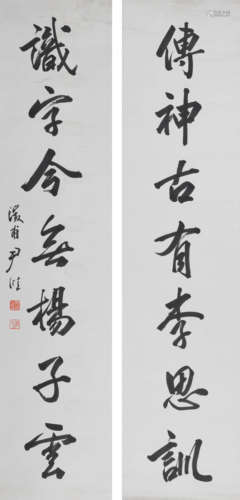 傳神古有李思訓
識字今無楊子雲
澂甫尹淮